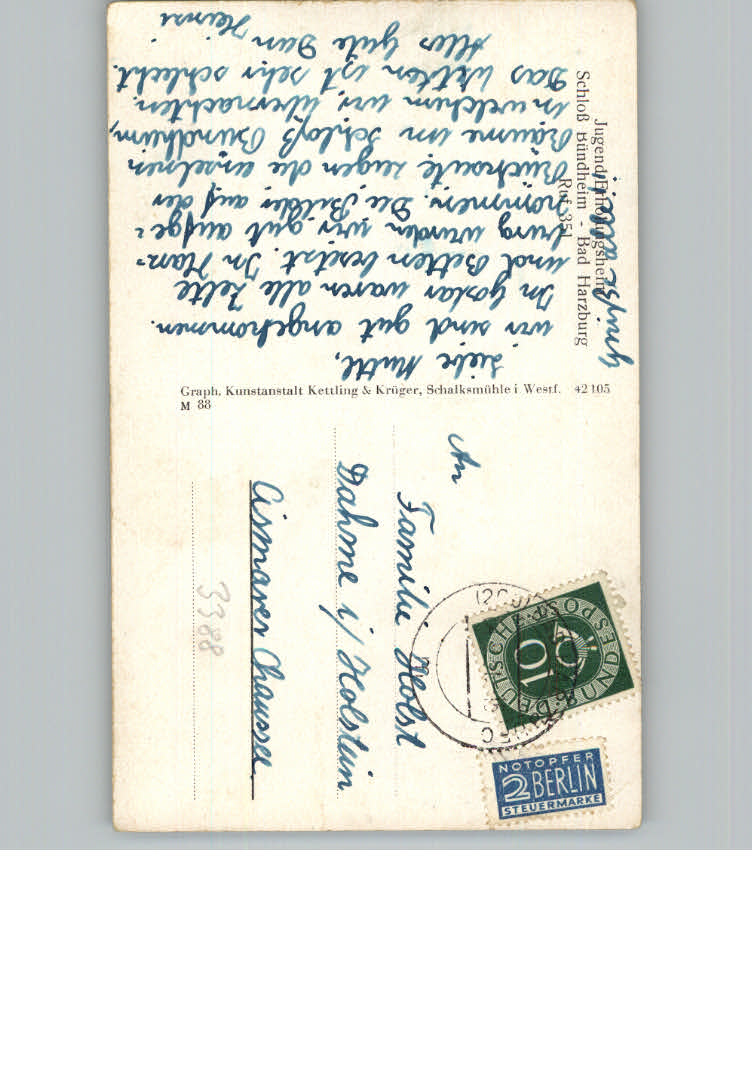 Jugend-Erholungsheim
Schloß Bündheim - Bad Harzburg
Ruf 351
Liebe Mutti,
wir sind gut angekommen.
In Goslar waren alle Zelte
und Betten besetzt. In Harz-
burg wurden wir gut aufge-
nommen. Die Bilder auf der
Rückseite zeigen die einzelnen
Räume im Schloß Bündheim,
in welchem wir übernachten.
Das Wetter ist sehr schlecht.
Alles Gute Dein Heini
Graph. Kunstanstalt Kettling & Krüger, Schalksmühle i Westf. 42105
M 88
An
Familie Holst
Dahme i/Holstein
Cismarer Chaussee
3388
DEUTSCHE BUNDESPOST
10
NOTOPFER
2 BERLIN
STEUERMARKE